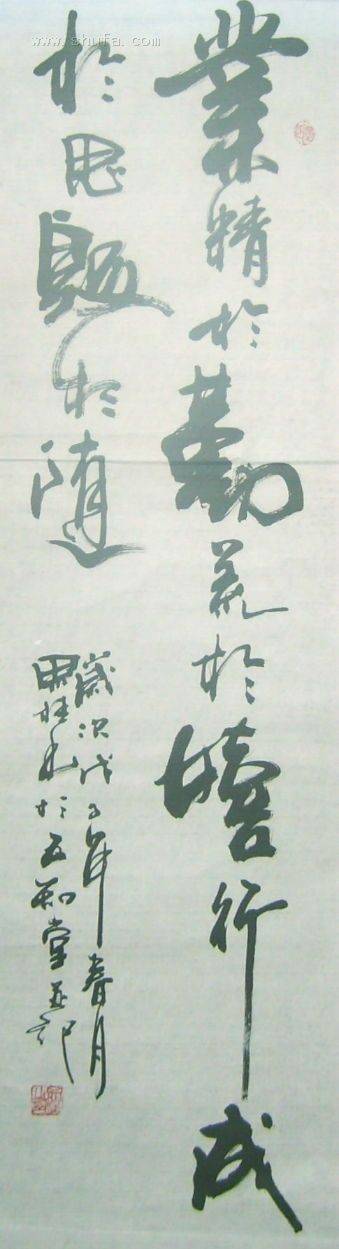 www.shufa.com
業精於勤荒於嬉行成
於思毀於隨
歲次戊子年春月
於五和堂並記